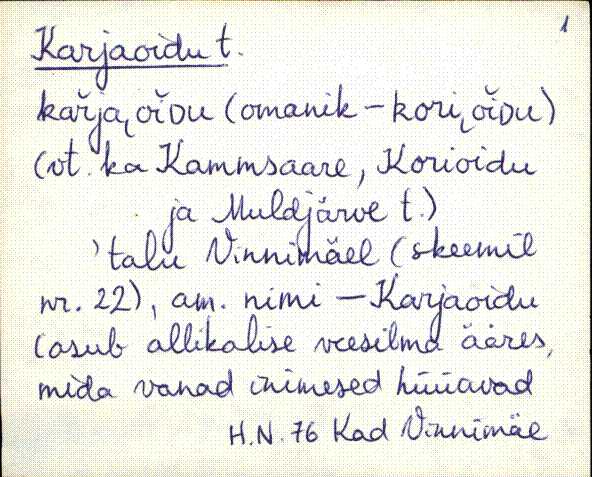 1
Karjaoidu t.
kaŕja‿oiDu (omanik – kori‿oiDu)
(vt. ka Kammsaare, Korioidu
ja Muldjärve t.)
' talu Vinnimäel (skeemil
nr. 22), am. nimi – Karjaoidu
(asub allikalise veesilma ääres,
mida vanad inimesed hüüavad
H.N. 76 Kad Vinnimäe